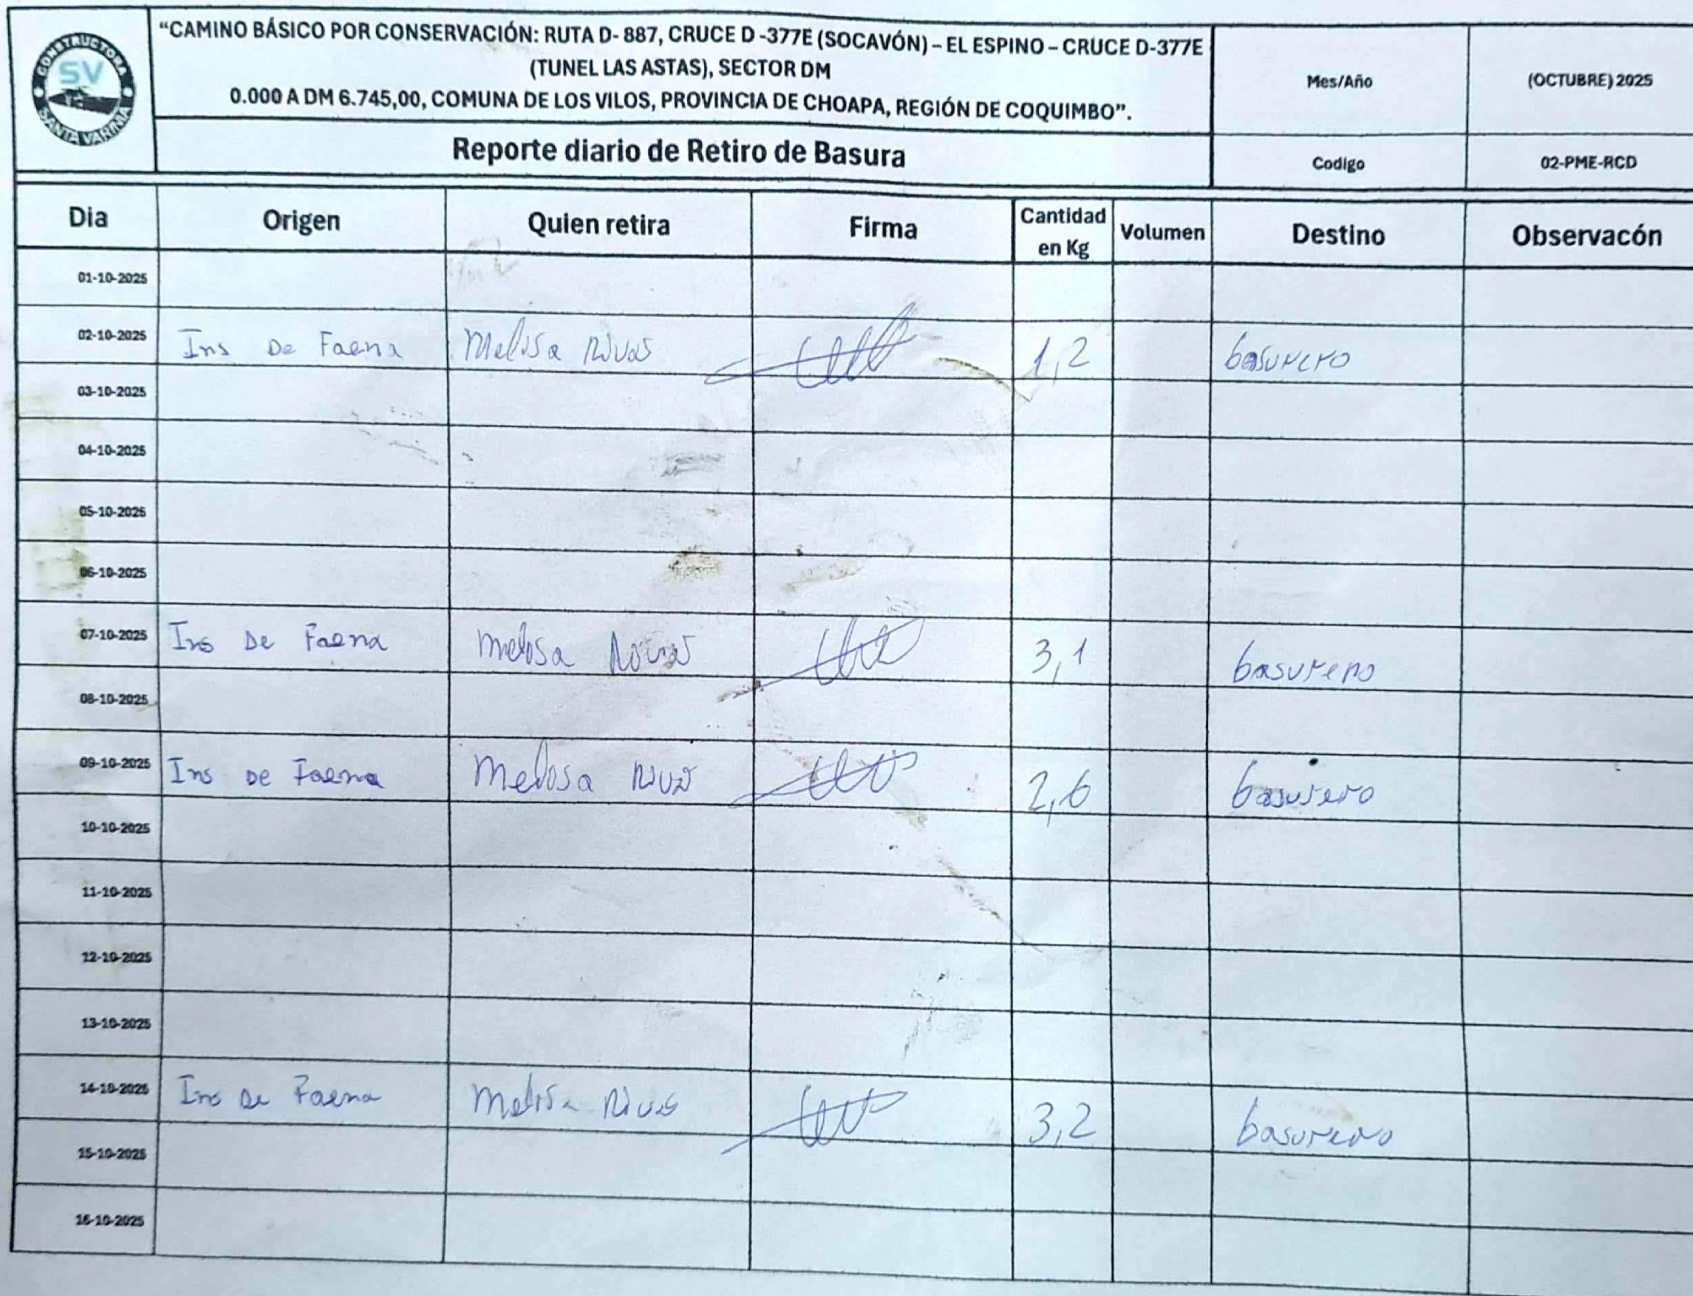 CONSTRUCTORA
SV
SANTA VARINIA
“CAMINO BÁSICO POR CONSERVACIÓN: RUTA D- 887, CRUCE D -377E (SOCAVÓN) – EL ESPINO – CRUCE D-377E
(TUNEL LAS ASTAS), SECTOR DM
0.000 A DM 6.745,00, COMUNA DE LOS VILOS, PROVINCIA DE CHOAPA, REGIÓN DE COQUIMBO”.
Mes/Año (OCTUBRE) 2025
Reporte diario de Retiro de Basura
Codigo 02-PME-RCD
Dia Origen Quien retira Firma Cantidad en Kg Volumen Destino Observacón
01-10-2025
02-10-2025 Ins De Faena Melisa Rivas 1,2 basurero
03-10-2025
04-10-2025
05-10-2025
06-10-2025
07-10-2025 Ins De Faena Melisa Rivas 3,1 basurero
08-10-2025
09-10-2025 Ins De Faena Melisa Rivas 2,6 basurero
10-10-2025
11-10-2025
12-10-2025
13-10-2025
14-10-2025 Ins De Faena Melisa Rivas 3,2 basurero
15-10-2025
16-10-2025